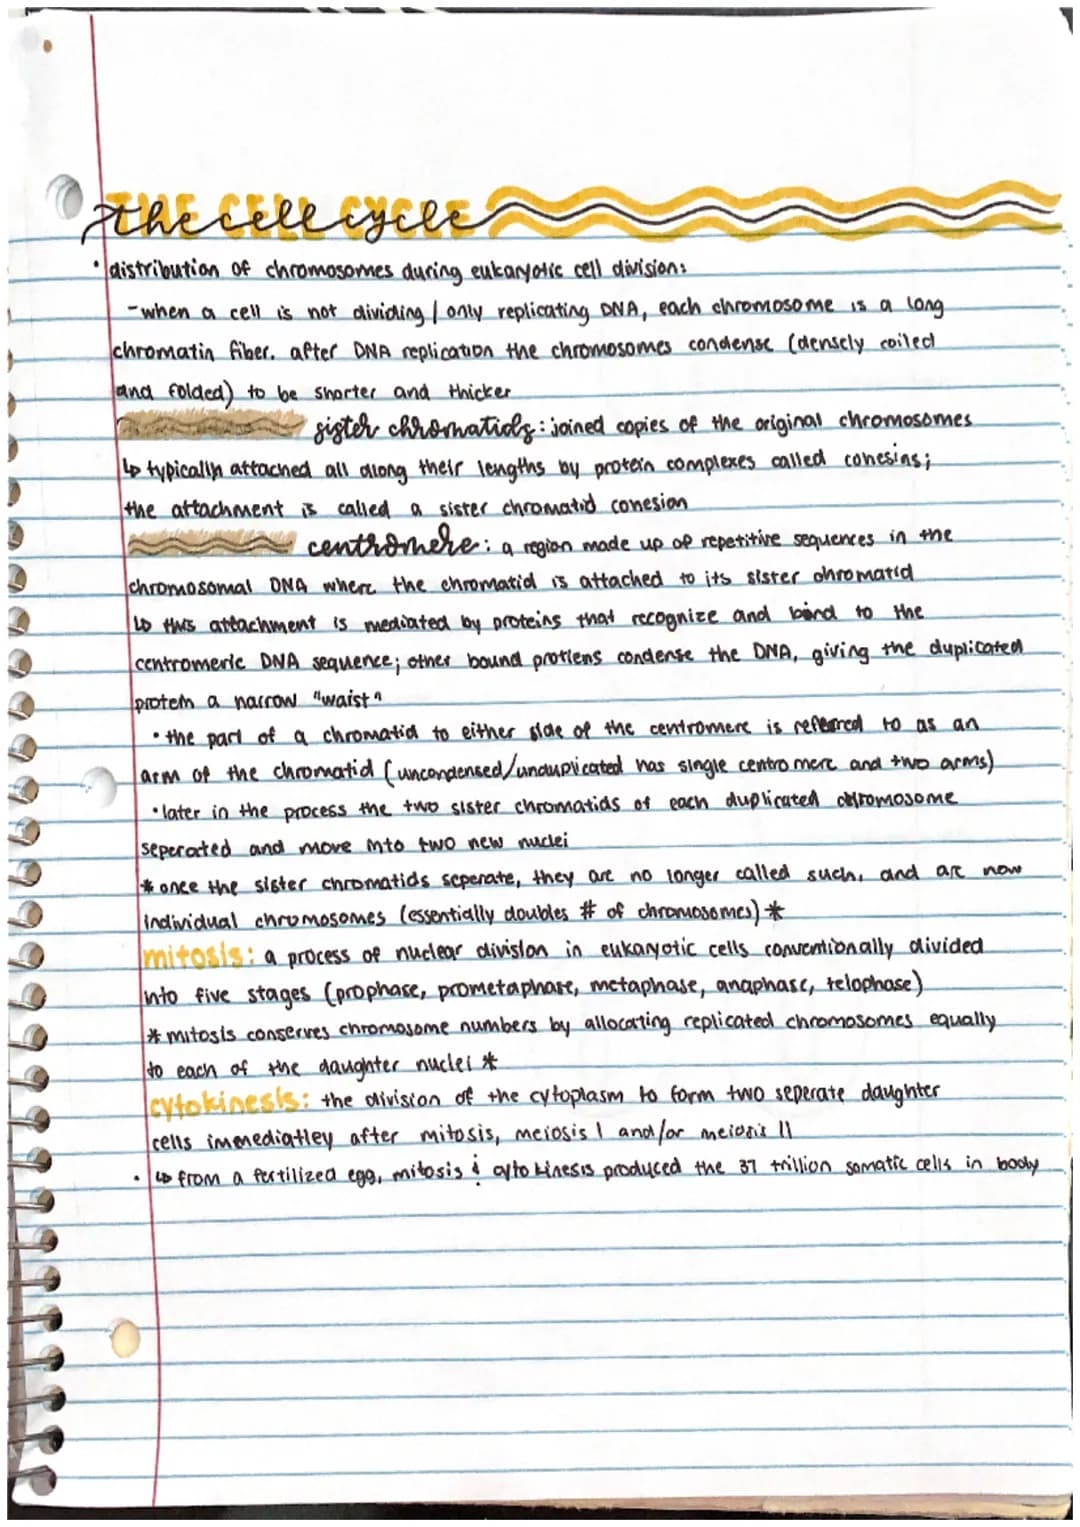 THE CELL CYCLE
the cell cycle
• distribution of chromosomes during eukaryotic cell division:
- when a cell is not dividing / only replicating DNA, each chromosome is a long
chromatin fiber. after DNA replication the chromosomes condense (densely coiled
and folded) to be shorter and thicker
sister chromatids: joined copies of the original chromosomes
↳ typically attached all along their lengths by protein complexes called cohesins;
the attachment is called a sister chromatid cohesion
centromere: a region made up of repetitive sequences in the
chromosomal DNA where the chromatid is attached to its sister chromatid
↳ this attachment is mediated by proteins that recognize and bind to the
centromeric DNA sequence; other bound protiens condense the DNA, giving the duplicated
protein a narrow "waist"
• the part of a chromatid to either side of the centromere is referred to as an
arm of the chromatid (uncondensed/unduplicated has single centromere and two arms)
• later in the process the two sister chromatids of each duplicated chromosome
seperated and move into two new nuclei
* once the sister chromatids seperate, they are no longer called such, and are now
individual chromosomes (essentially doubles # of chromosomes) *
mitosis: a process of nuclear division in eukaryotic cells conventionally divided
into five stages (prophase, prometaphase, metaphase, anaphase, telophase)
* mitosis conserves chromosome numbers by allocating replicated chromosomes equally
to each of the daughter nuclei *
cytokinesis: the division of the cytoplasm to form two seperate daughter
cells immediatley after mitosis, meiosis I and/or meiosis II
• ↳ from a fertilized egg, mitosis & cytokinesis produced the 37 trillion somatic cells in body